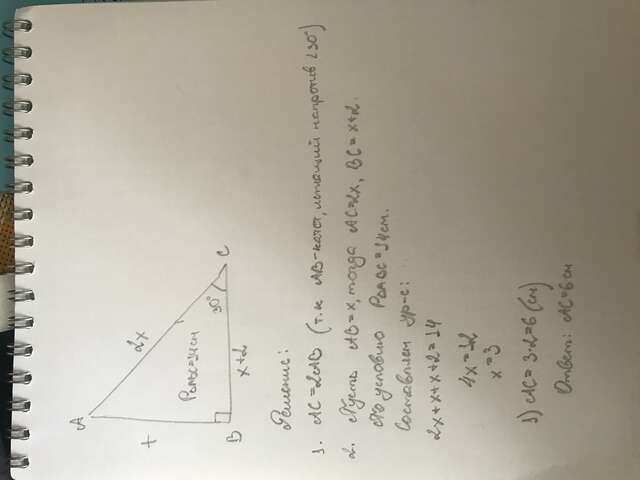 A
2x
x
P△ABC=14см
30°
C
B
x+2
Решение:
1. AC=2AB (т.к AB-катет, лежащий напротив ∠30°)
2. Пусть AB=x, тогда AC=2x, BC=x+2.
По условию P△ABC=14см.
Составляем ур-е:
2x+x+x+2=14
4x=12
x=3
3) AC=3·2=6(см)
Ответ: AC=6см